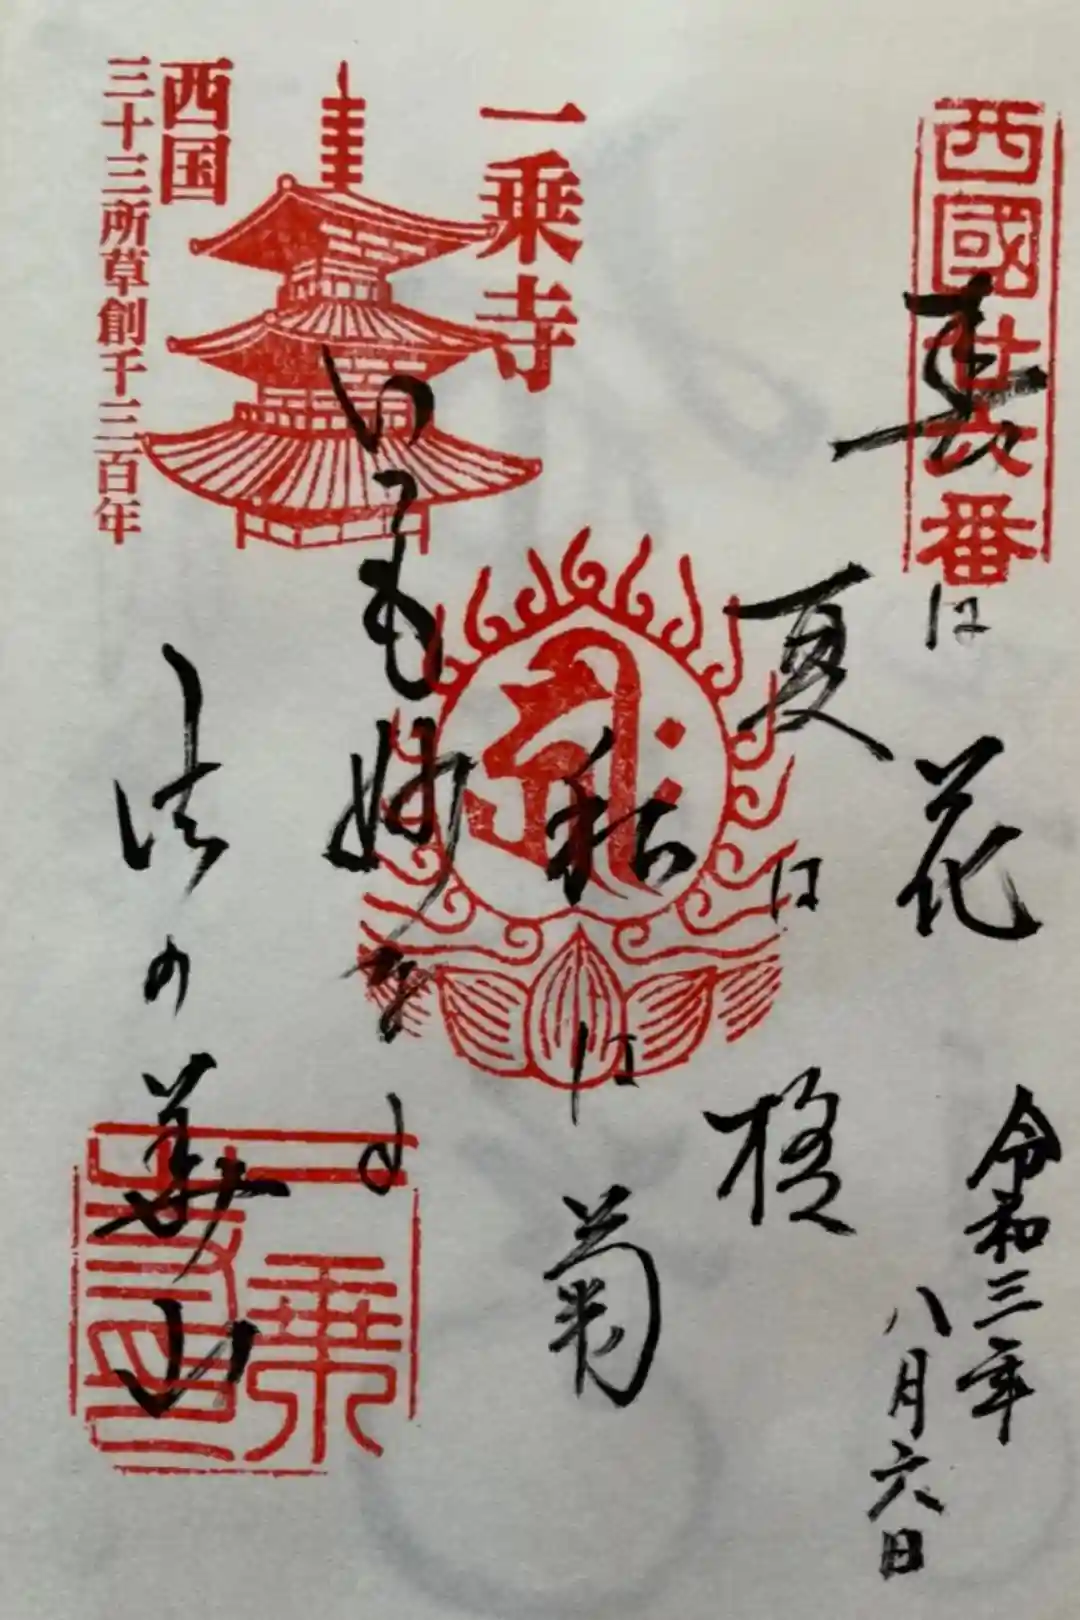 西國廿六番
春は花
夏は橘
秋は菊
いつも妙なる
法の華山
令和三年
八月六日
一乗寺
西国
三十三所草創千三百年
一乗
寺印